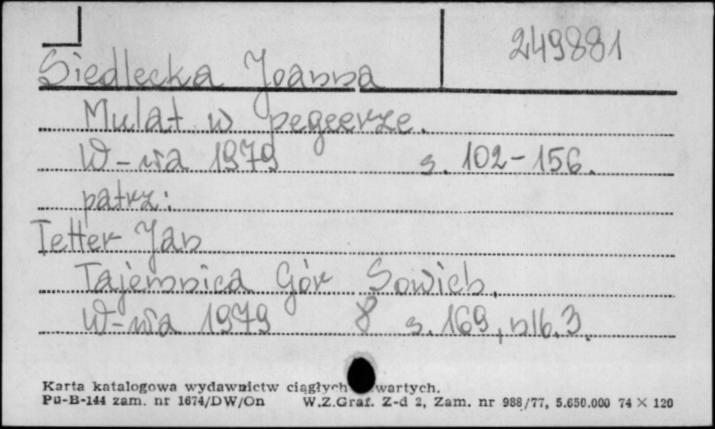 249881
Siedlecka Joanna
Mulat w pegeerze.
W-wa 1979 s. 102-156.
patrz:
Tetter Jan
Tajemnica Gór Sowich.
W-wa 1979 8 s. 169, nlb. 3.
Karta katalogowa wydawnictw ciągłych wartych.
Pu-B-144 zam. nr 1674/DW/On W.Z.Graf. Z-d 2, Zam. nr 988/77, 5.650.000 74 × 120